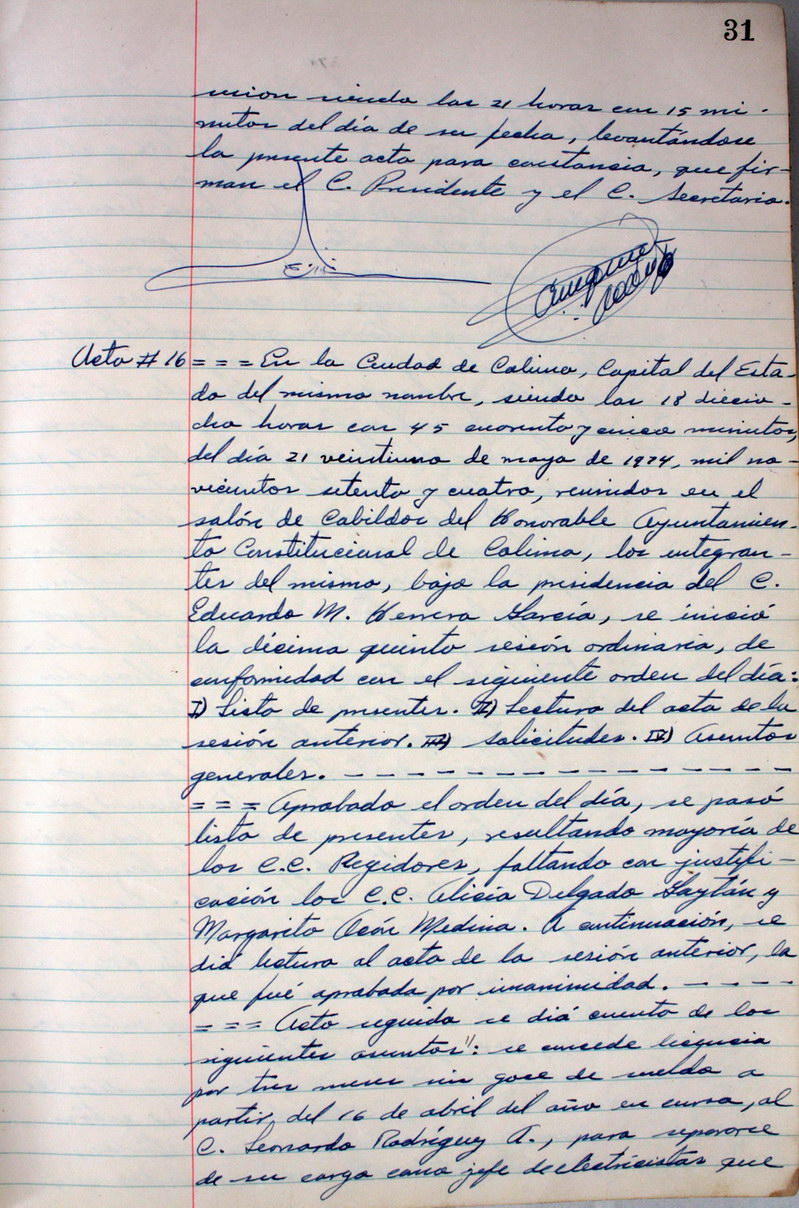 31
sion siendo las 21 horas con 15 mi-
nutos del día de su fecha, levantándose
la presente acta para constancia, que fir-
man el C. Presidente y el C. Secretario.
Acta # 16 = = = En la Ciudad de Colima, Capital del Esta-
do del mismo nombre, siendo las 18 diecio-
cho horas con 45 cuarenta y cinco minutos,
del día 21 veintiuno de mayo de 1974, mil no-
vecientos setenta y cuatro, reunidos en el
salón de Cabildos del Honorable Ayuntamien-
to Constitucional de Colima, los integran-
tes del mismo, bajo la presidencia del C.
Eduardo M. Herrera García, se inició
la décima quinta sesión ordinaria, de
conformidad con el siguiente orden del día:
I) Lista de presentes. II) Lectura del acta de la
sesión anterior. III) Solicitudes. IV) Asuntos
generales. - - - - - - - - - - - - - - -
= = = Aprobado el orden del día, se pasó
lista de presentes, resultando mayoría de
los C.C. Regidores, faltando con justifi-
cación los C.C. Alicia Delgado Gaytán y
Margarito Medina. A continuación, se
dió lectura al acta de la sesión anterior, la
que fué aprobada por unanimidad. - - - -
= = = Acto seguido se dió cuenta de los
siguientes asuntos": se concede licencia
por tres meses sin goce de sueldo a
partir del 16 de abril del año en curso, al
C. Leonardo Rodríguez A., para separarse
de su cargo como jefe de electricistas que